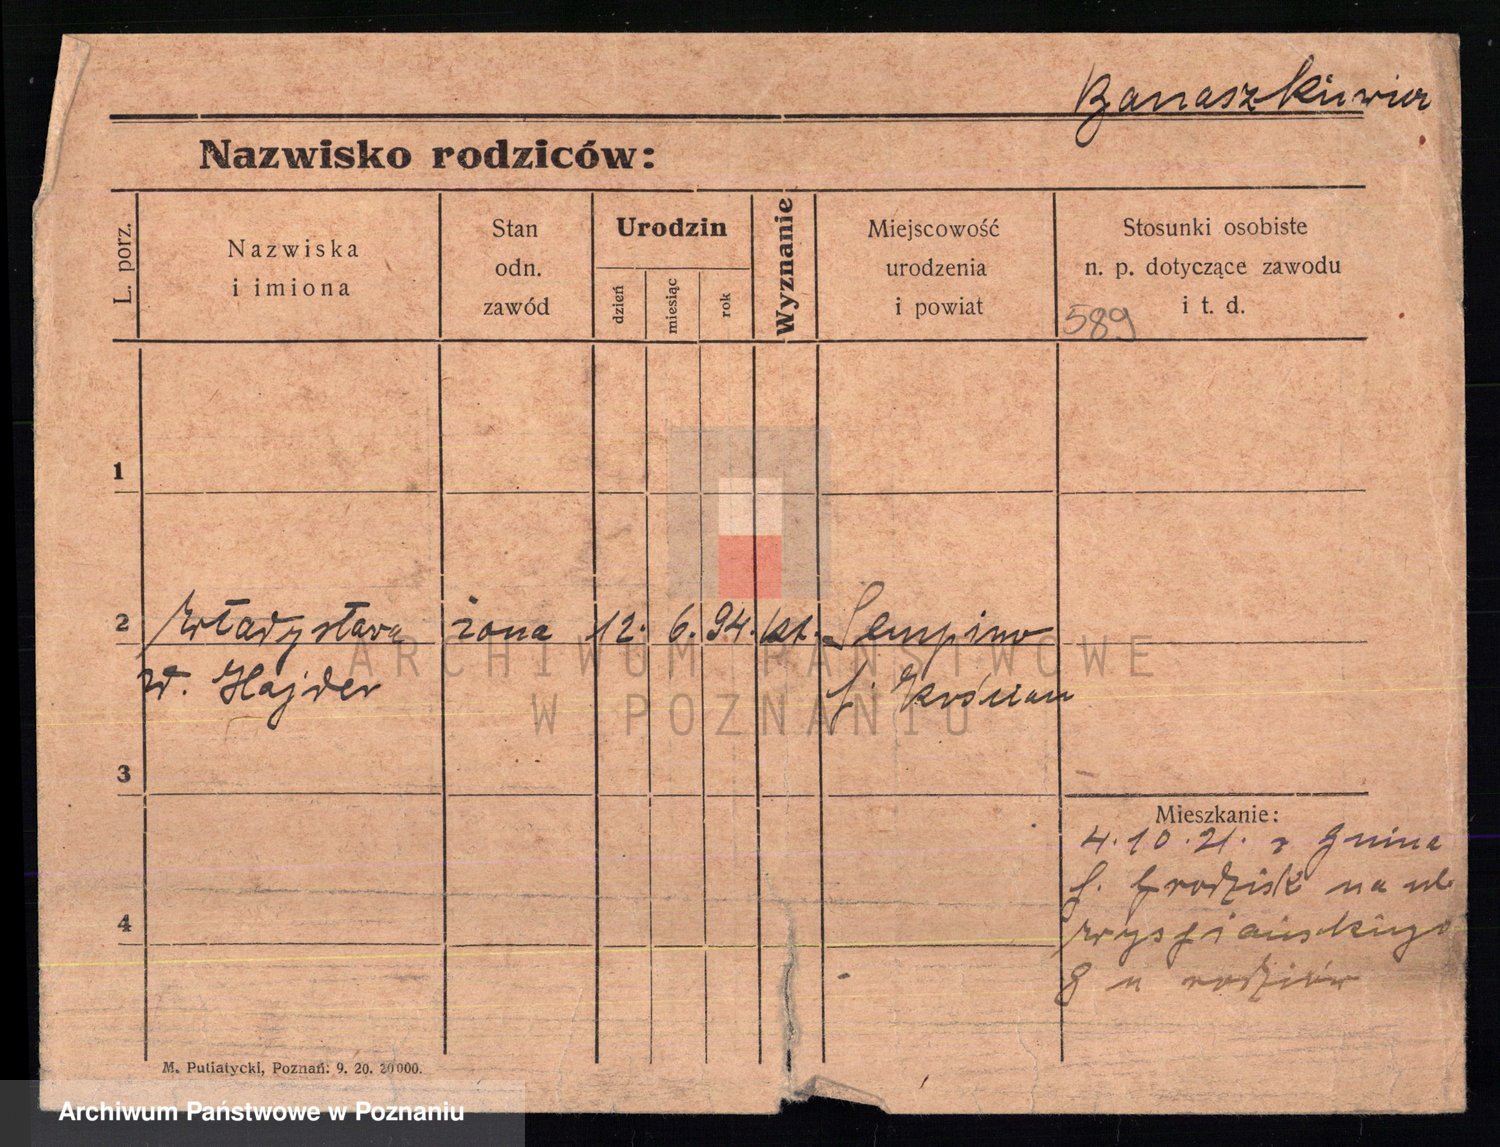 Banaszkiewicz
Nazwisko rodziców:
L. porz.
Nazwiska
i imiona
Stan
odn.
zawód
Urodzin
dzień
miesiąc
rok
Wyznanie
Miejscowość
urodzenia
i powiat
Stosunki osobiste
n. p. dotyczące zawodu
i t. d.
589
1
2 Władysława żona 12. 6. 94. kt. Sempino
W. Hajder p. Kościan
3
Mieszkanie:
4.10.21. z Gnina
p. Grodzisk na ul.
4
Wyspiańskiego
8 u rodziców
M. Putiatycki, Poznań: 9. 20. 20000.
ARCHIWUM PAŃSTWOWE
W POZNANIU
Archiwum Państwowe w Poznaniu